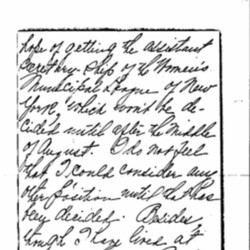 hope of getting the assistant
secretary-ship of the Woman's
Municipal League of New
York, which won't be de-
cided until after the middle
of August. I do not feel
that I could consider any
other position until that has
been decided. Besides
though I have lived at